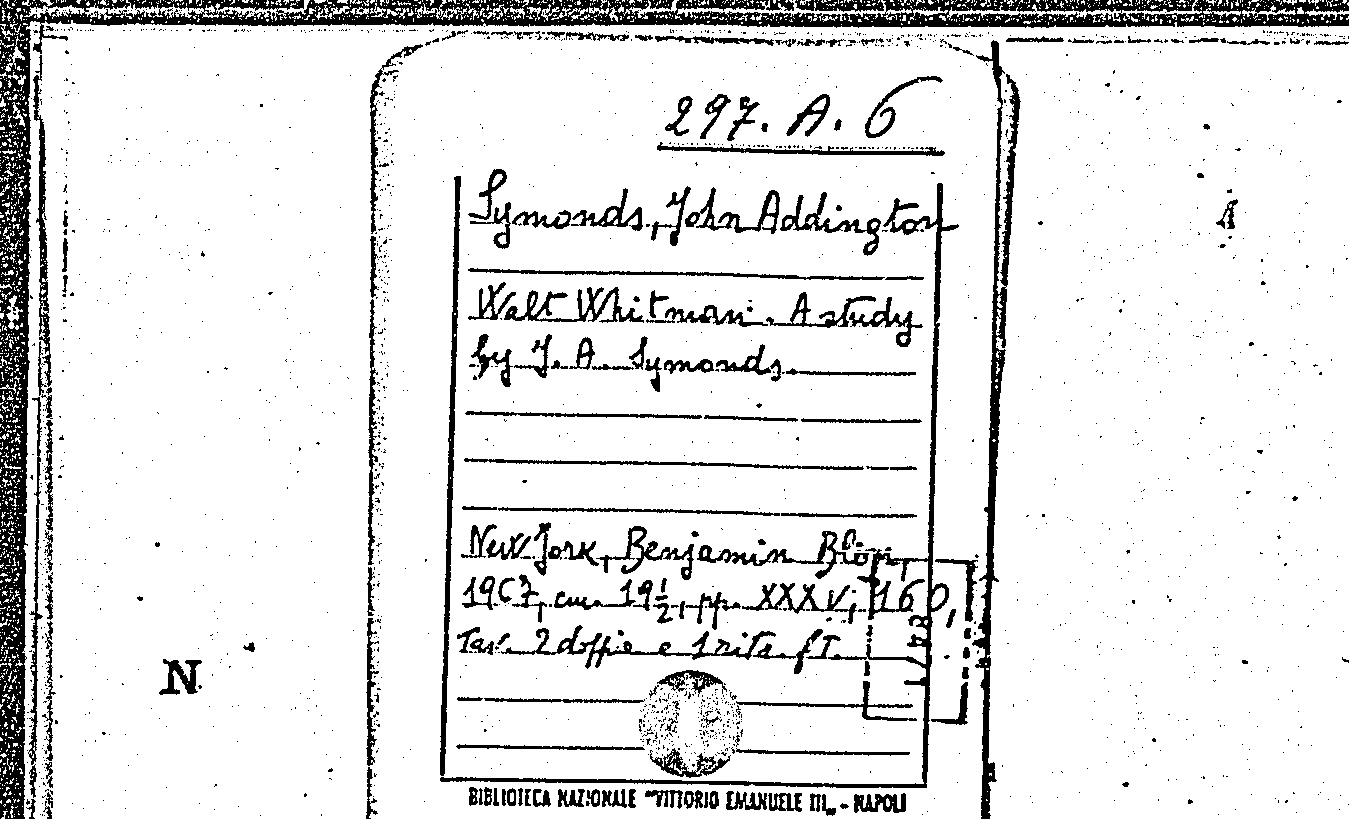 297. A. 6
Symonds, John Addington
Walt Whitman. A study
by J. A. Symonds.
New York, Benjamin Blom,
1967, cm. 19½, pp. XXXV, 160,
Tav. 2 doppie e 1 ritr. f.T.
N
BIBLIOTECA NAZIONALE "VITTORIO EMANUELE III„ - NAPOLI